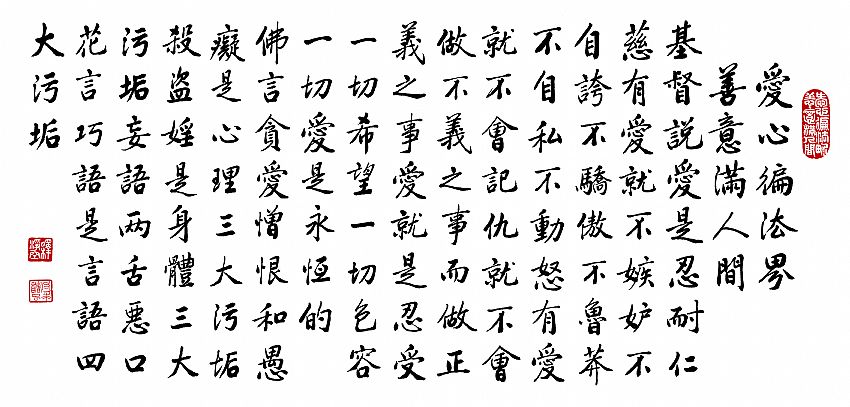 愛心徧法界
善意滿人間
基督說愛是忍耐仁
慈有愛就不嫉妒不
自誇不驕傲不魯莽
不自私不動怒有愛
就不會記仇就不會
做不義之事而做正
義之事愛就是忍受
一切希望一切包容
一切愛是永恒的
佛言貪愛憎恨和愚
癡是心理三大污垢
殺盜婬是身體三大
污垢妄語两舌惡口
花言巧語是言語四
大污垢